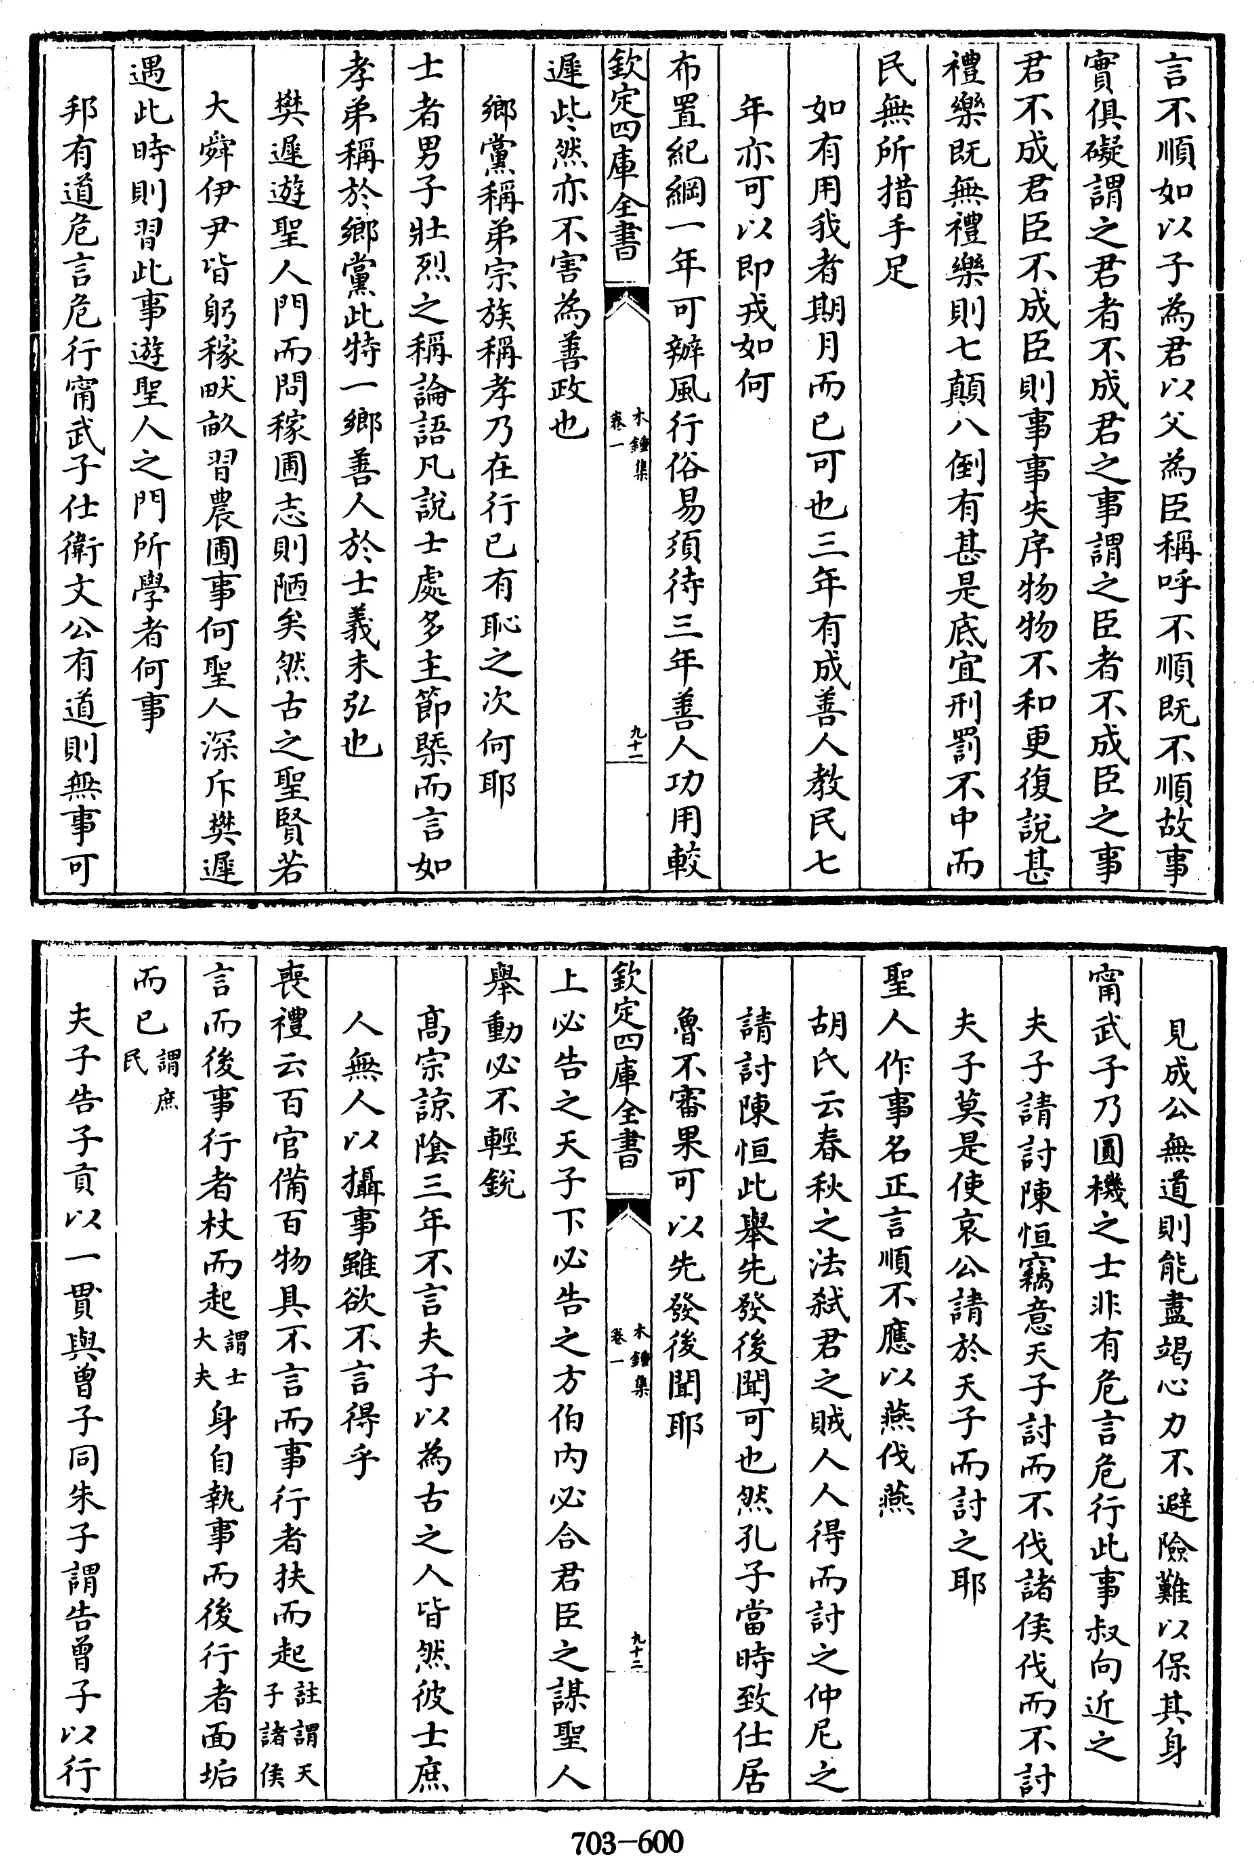 言不順如以子為君以父為臣稱呼不順既不順故事
實俱礙謂之君者不成君之事謂之臣者不成臣之事
君不成君臣不成臣則事事失序物物不和更復說甚
禮樂既無禮樂則七顛八倒有甚是底宜刑罰不中而
民無所措手足
如有用我者期月而已可也三年有成善人教民七
年亦可以即戎如何
布置紀綱一年可辦風行俗易須待三年善人功用較
欽定四庫全書
木鐘集
卷一
九十一
遲些然亦不害為善政也
鄉黨稱弟宗族稱孝乃在行已有恥之次何耶
士者男子壯烈之稱論語凡說士處多主節槩而言如
孝弟稱於鄉黨此特一鄉善人於士義未弘也
樊遲遊聖人門而問稼圃志則陋矣然古之聖賢若
大舜伊尹皆躬稼畎畝習農圃事何聖人深斥樊遲
遇此時則習此事遊聖人之門所學者何事
邦有道危言危行甯武子仕衛文公有道則無事可
見成公無道則能盡竭心力不避險難以保其身
甯武子乃圓機之士非有危言危行此事叔向近之
夫子請討陳恒竊意天子討而不伐諸侯伐而不討
夫子莫是使哀公請於天子而討之耶
聖人作事名正言順不應以燕伐燕
胡氏云春秋之法弑君之賊人人得而討之仲尼之
請討陳恒此舉先發後聞可也然孔子當時致仕居
魯不審果可以先發後聞耶
欽定四庫全書
木鐘集
卷一
九十二
上必告之天子下必告之方伯內必合君臣之謀聖人
舉動必不輕銳
高宗諒陰三年不言夫子以為古之人皆然彼士庶
人無人以攝事雖欲不言得乎
喪禮云百官備百物具不言而事行者扶而起註謂天子諸侯
言而後事行者杖而起謂士大夫身自執事而後行者面垢
而已謂庶民
夫子告子貢以一貫與曾子同朱子謂告曾子以行
703-600